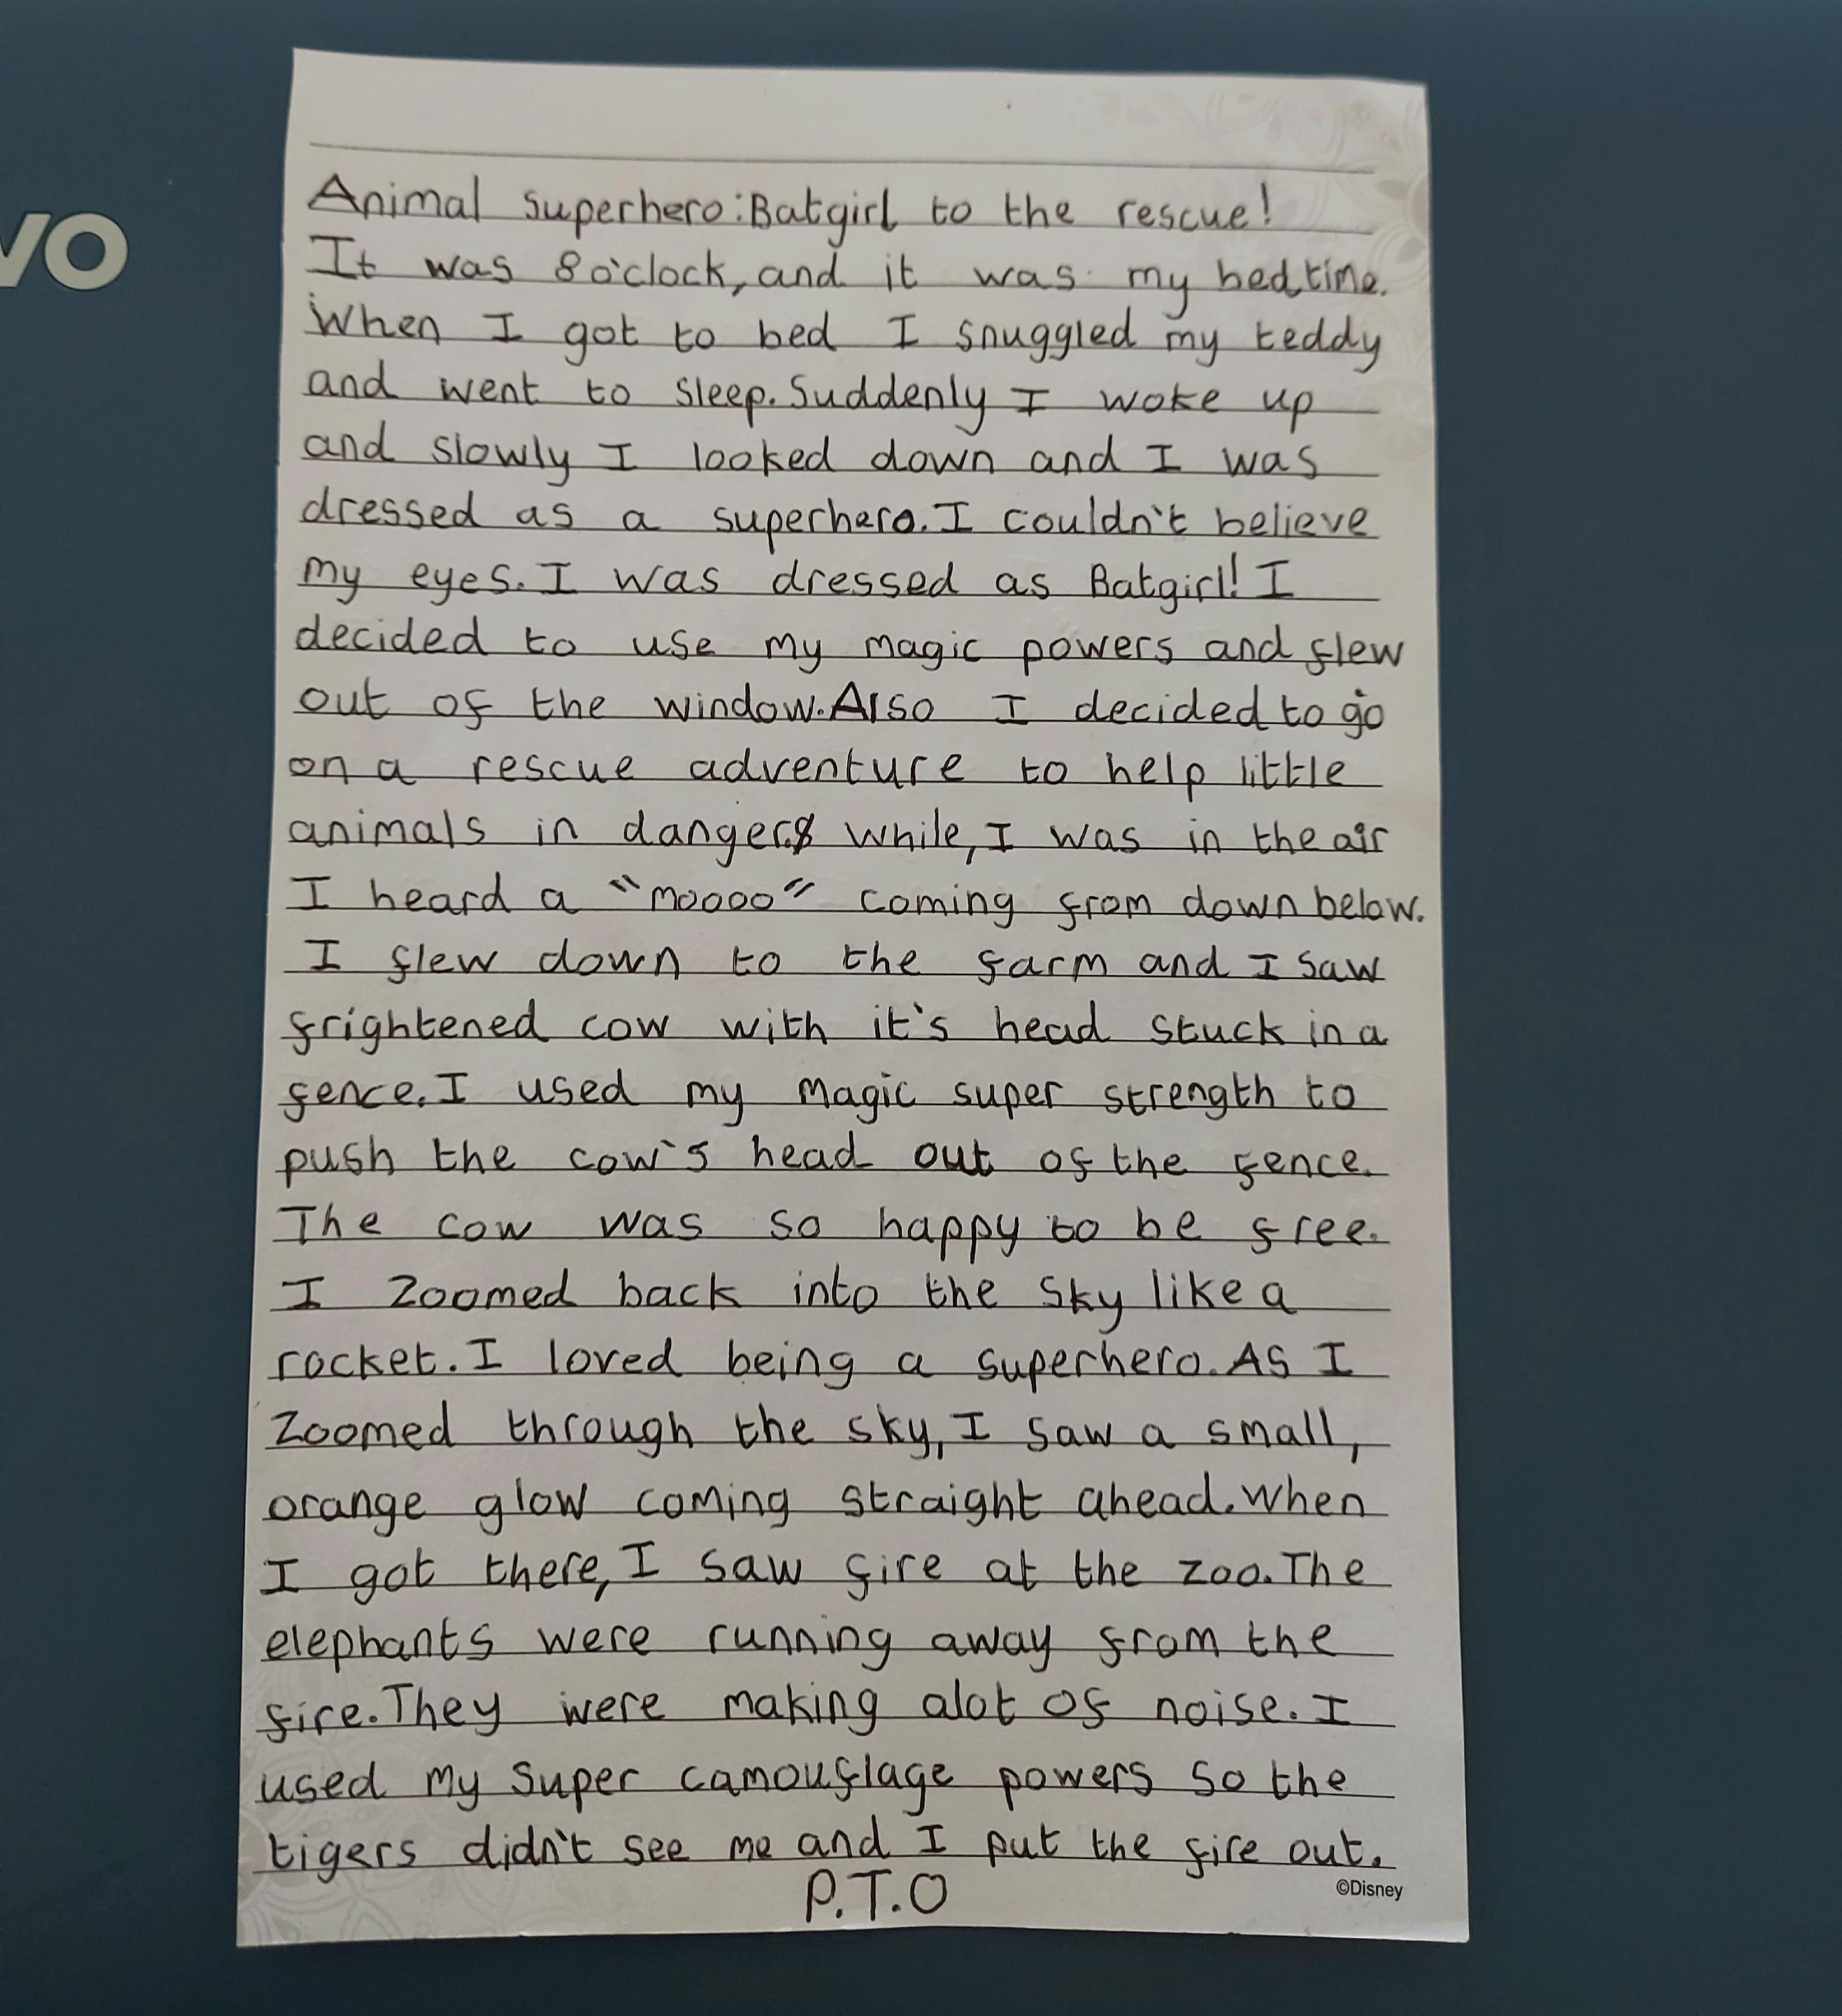 VO
Animal superhero:Batgirl to the rescue!
It was 8 o'clock, and it was my bedtime.
When I got to bed I snuggled my teddy
and went to sleep. Suddenly I woke up
and slowly I looked down and I was
dressed as a superhero. I couldn't believe
my eyes. I was dressed as Batgirl! I
decided to use my magic powers and flew
out of the window. Also I decided to go
on a rescue adventure to help little
animals in danger. While, I was in the air
I heard a "moooo" coming from down below.
I flew down to the farm and I saw
frightened cow with it's head stuck in a
fence. I used my magic super strength to
push the cow's head out of the fence.
The cow was so happy to be free.
I zoomed back into the sky like a
rocket. I loved being a superhero. As I
zoomed through the sky, I saw a small,
orange glow coming straight ahead. When
I got there, I saw fire at the zoo. The
elephants were running away from the
fire. They were making alot of noise. I
used my super camouflage powers so the
tigers didn't see me and I put the fire out.
P.T.O
©Disney